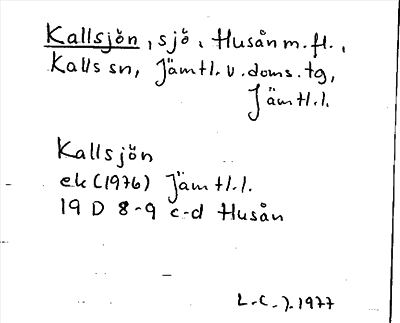 Kallsjön, sjö, Husån m.fl.,
Kalls sn, Jämtl. v. doms. tg,
Jämtl.l.
Kallsjön
ek (1976) Jämtl.l.
19 D 8-9 c-d Husån
L.C.J. 1977